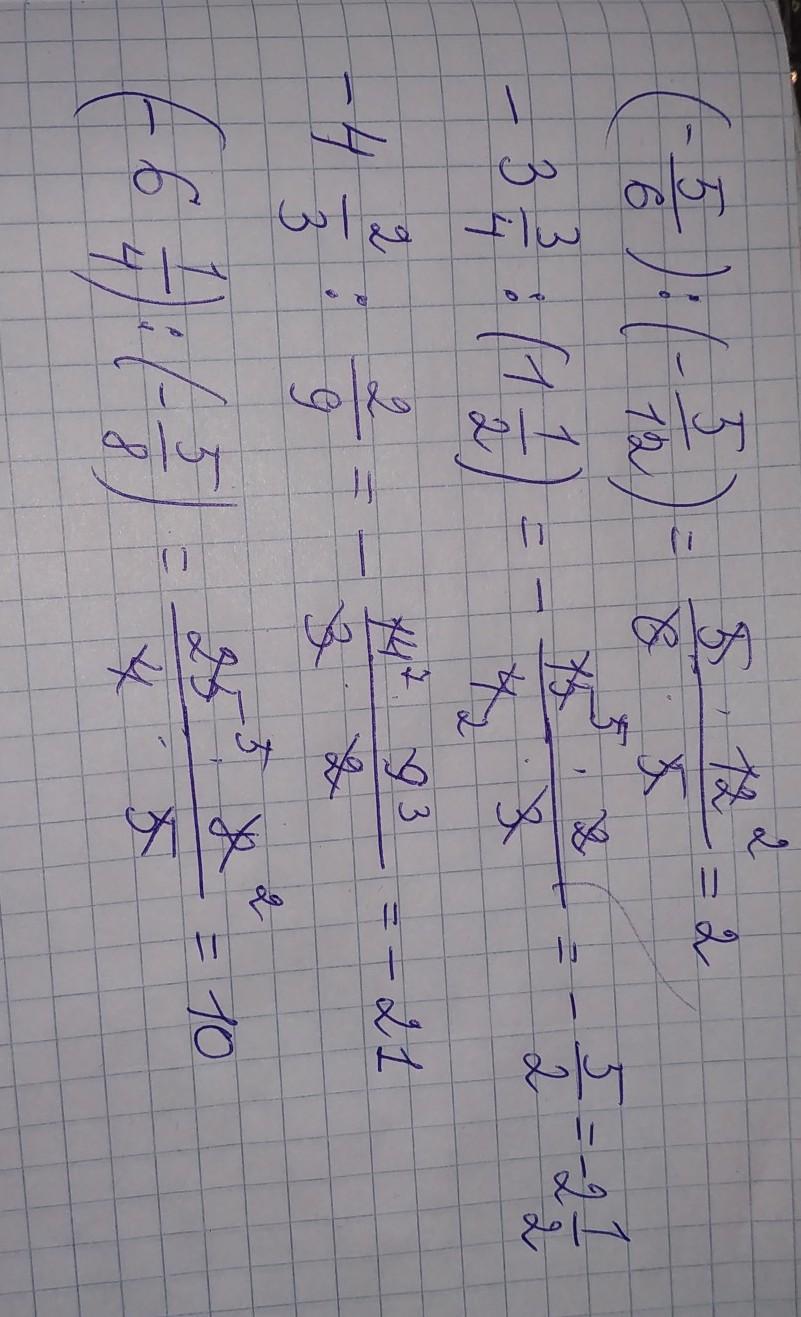 (-5/6) : (-5/12) = (5 · 12²)/(6 · 5) = 2
-3 3/4 : (1 1/2) = - (15⁵ · 2)/(4₂ · 3) = - 5/2 = -2 1/2
-4 2/3 : 2/9 = - (14⁷ · 9³)/(3 · 2) = -21
(-6 1/4) : (-5/8) = (25⁵ · 8²)/(4 · 5) = 10